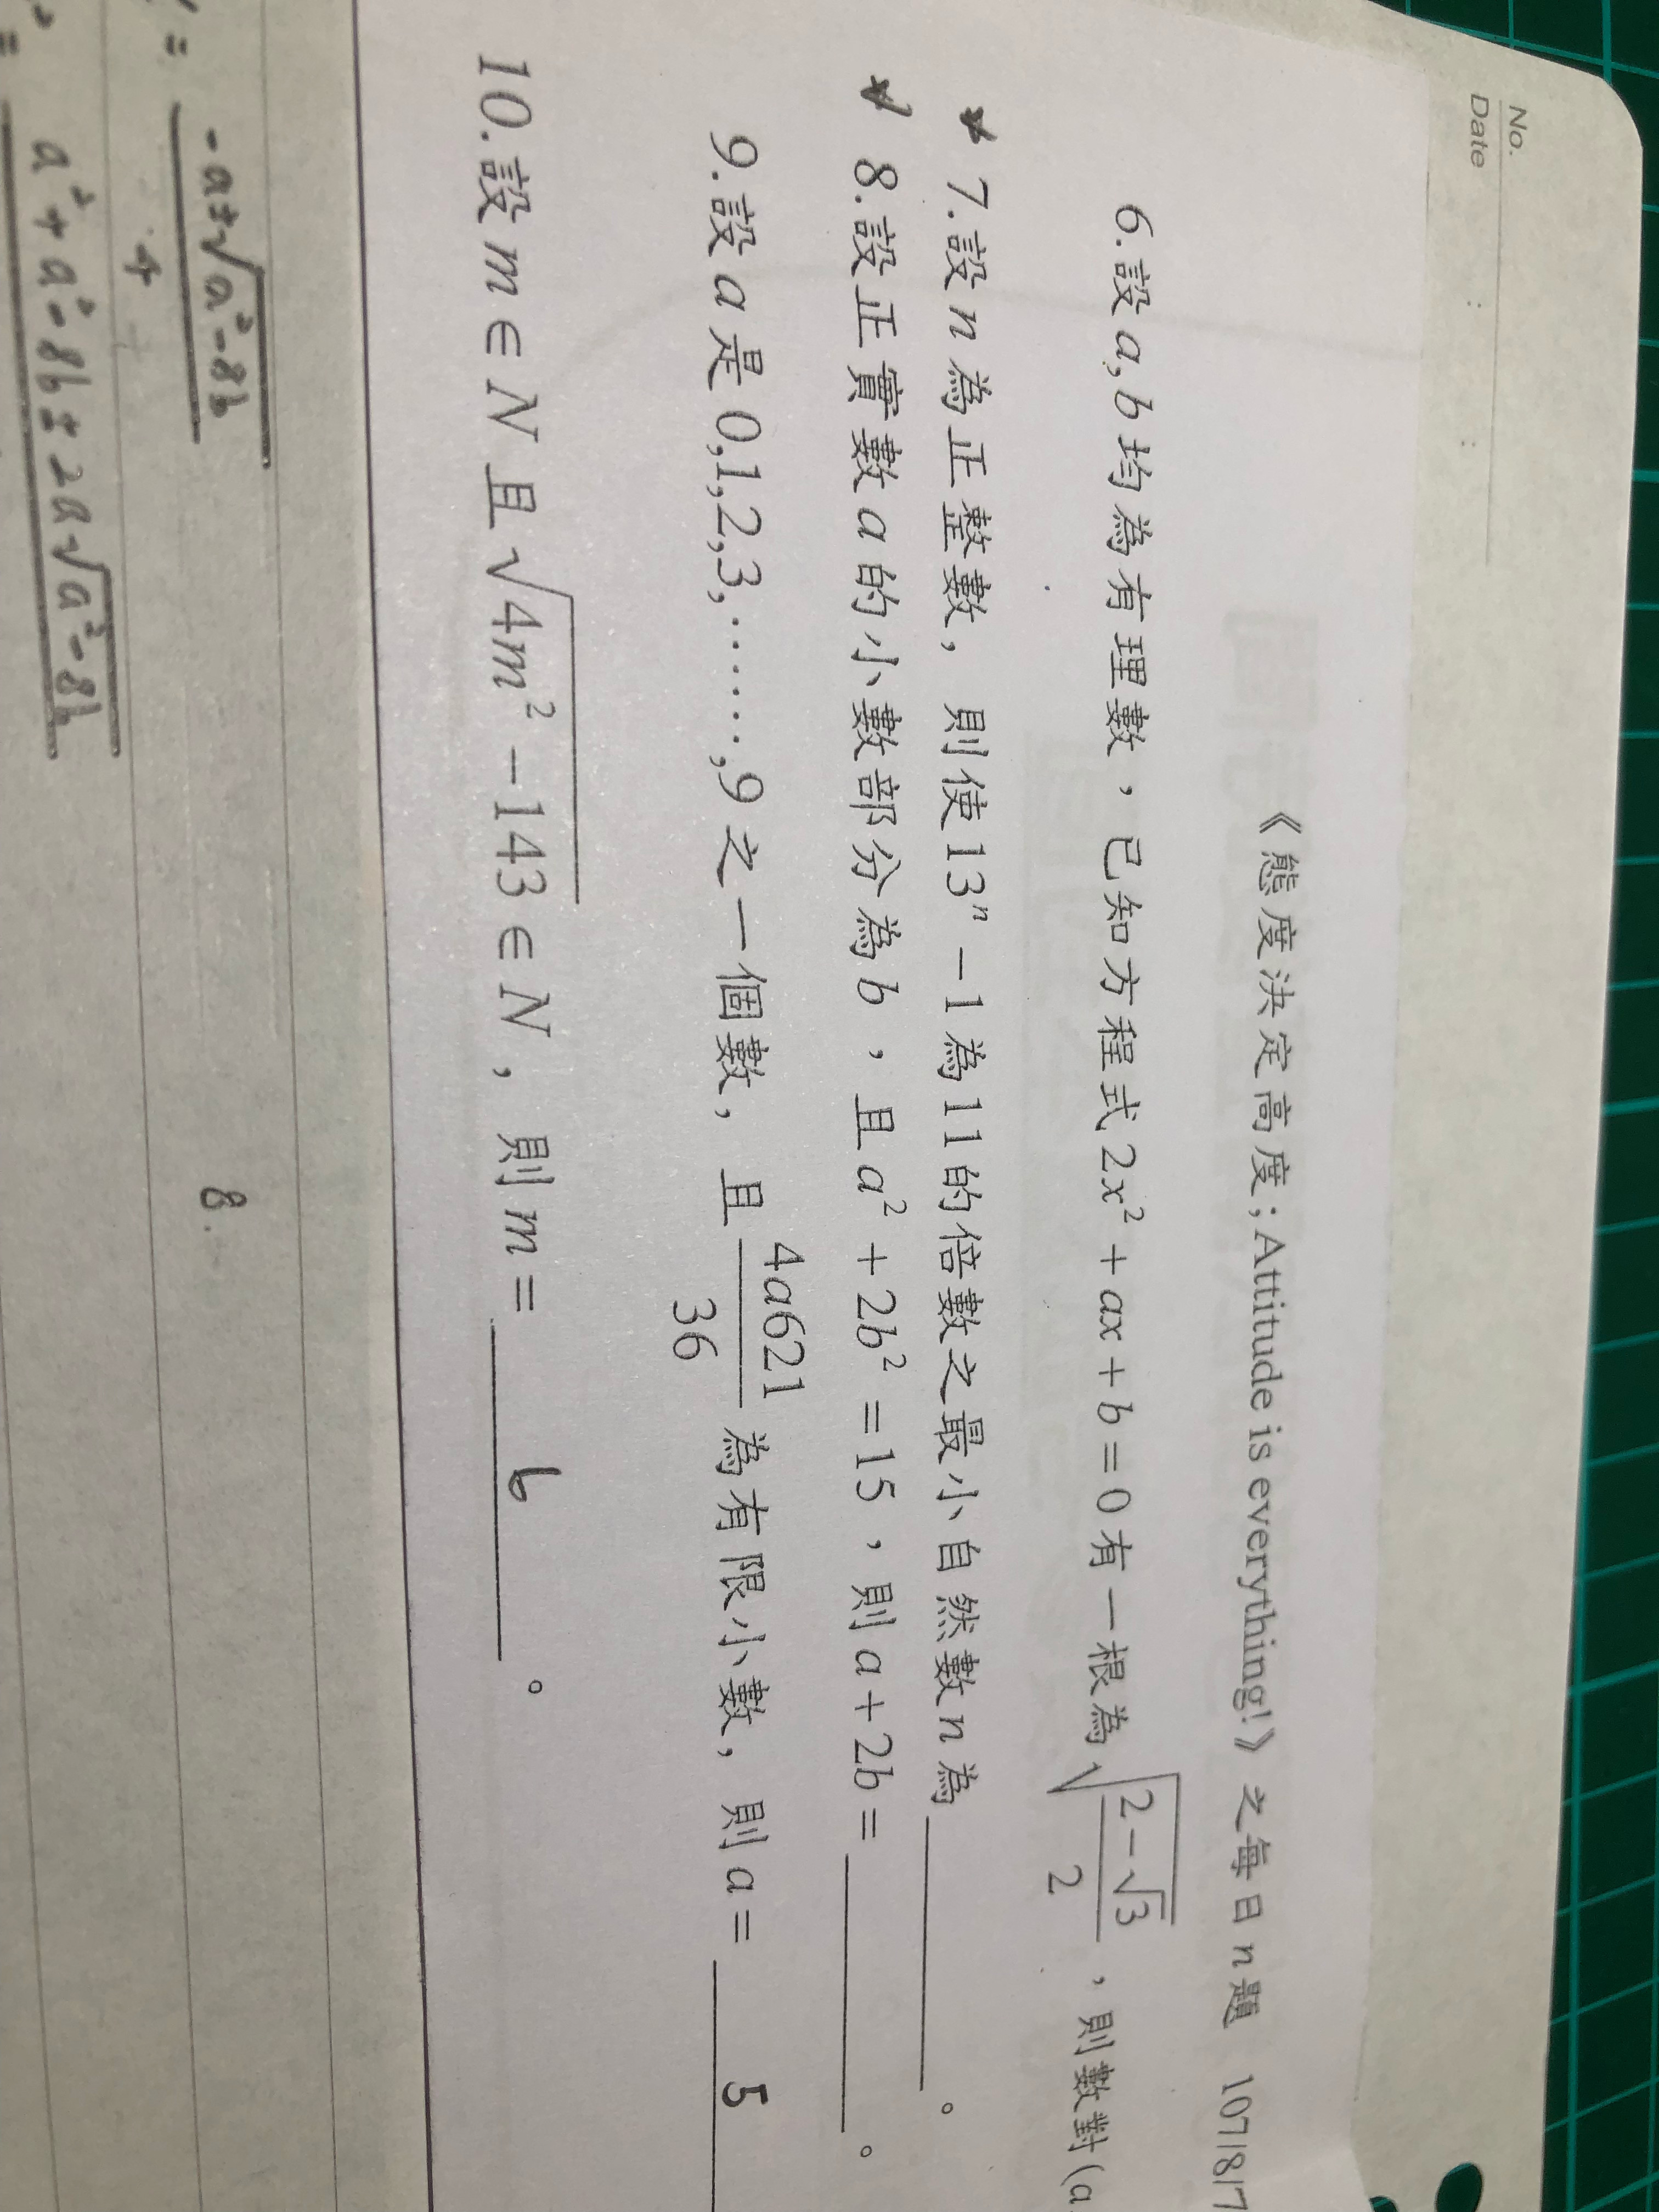 No.
Date : :
《態度決定高度；Attitude is everything!》之每日n題 107/8/7
6.設a,b均為有理數，已知方程式2x²+ax+b=0有一根為√((2-√3)/2)，則數對(a
7.設n為正整數，則使13ⁿ-1為11的倍數之最小自然數n為______。
8.設正實數a的小數部分為b，且a²+2b²=15，則a+2b=______。
9.設a是0,1,2,3,……,9之一個數，且4a621/36為有限小數，則a=5
10.設m∈N且√(4m²-143)∈N，則m=6。
= (-a±√(a²-8b))/4
8.
= a²+a²-8b±2a√(a²-8b)